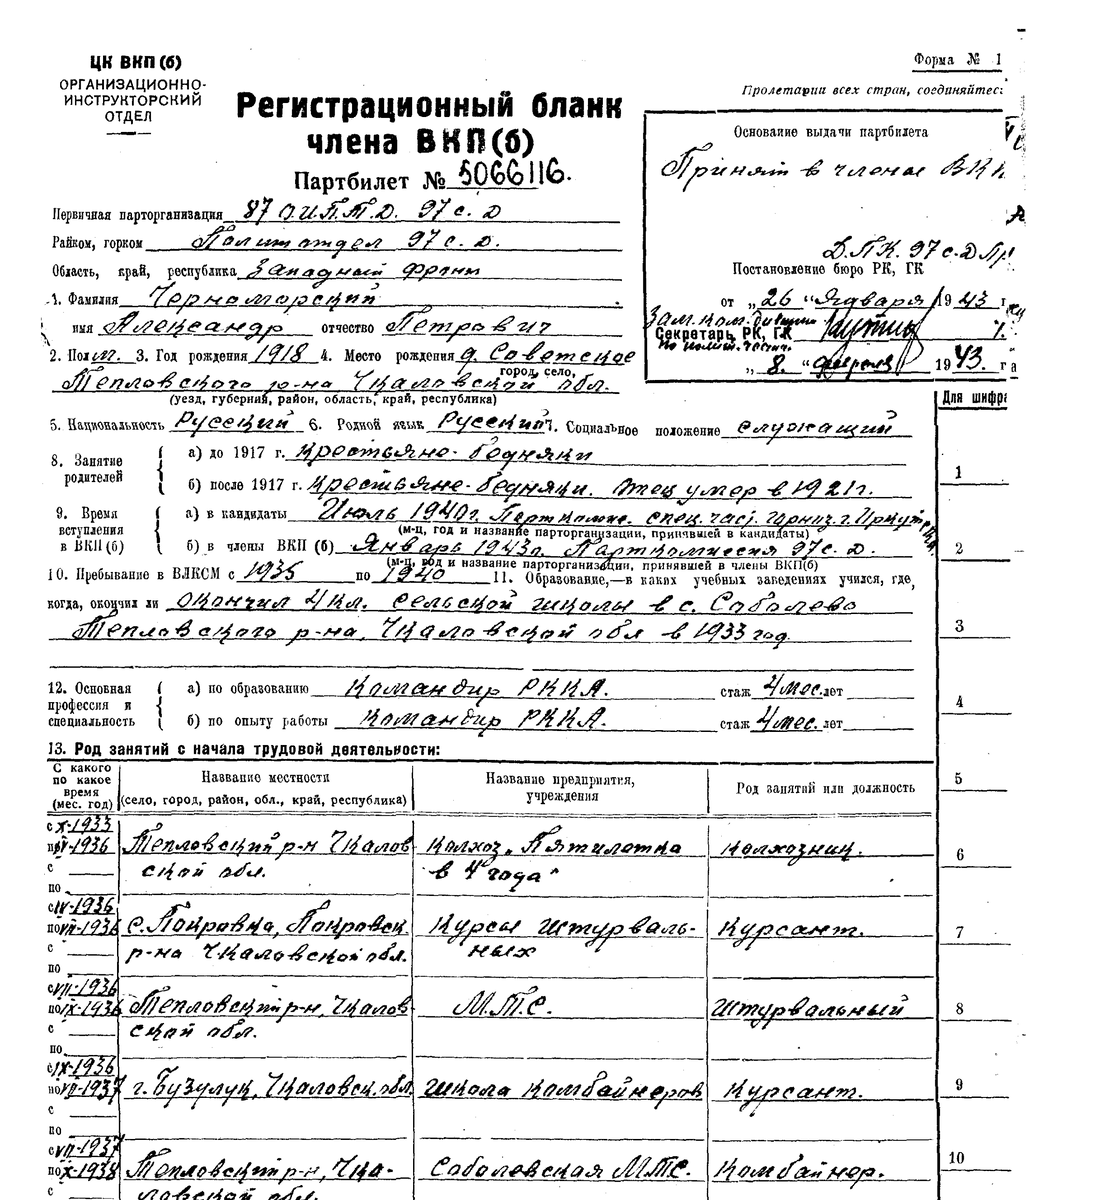 ЦК ВКП(б)
ОРГАНИЗАЦИОННО-
ИНСТРУКТОРСКИЙ
ОТДЕЛ
Форма № 1
Пролетарии всех стран, соединяйтес
Регистрационный бланк
члена ВКП(б)
Партбилет № 5066116.
Основание выдачи партбилета
Принят в члены ВКП
Д.П.К. 97 с.Д
Постановление бюро РК, ГК
от „26 " Января 1943 г
Секретарь РК, ГК
„ 8. " февраля 1943. г
Первичная парторганизация 87 О.И.П.Т.Д. 97 с. Д
Райком, горком Политотдел 97 с. д.
Область, край, республика Западный фронт
1. Фамилия Черноморский
имя Александр отчество Петрович
2. Пол м. 3. Год рождения 1918 4. Место рождения д. Советское
город, село,
Тепловского р-на Чкаловской обл.
(уезд, губерния, район, область, край, республика)
Для шифра
5. Национальность Русский 6. Родной язык Русский 7. Социальное положение служащий
8. Занятие родителей
а) до 1917 г. крестьяне-бедняки
б) после 1917 г. крестьяне-бедняки. Отец умер в 1921 г.
9. Время вступления в ВКП(б)
а) в кандидаты Июль 1940 г. Парткомис. спец. част. гарниз. г. Иркутска
(м-ц, год и название парторганизации, принявшей в кандидаты)
б) в члены ВКП (б) Январь 1943 г. Парткомиссия 97 с. д.
(м-ц, год и название парторганизации, принявшей в члены ВКП(б)
10. Пребывание в ВЛКСМ с 1935 по 1940 11. Образование,—в каких учебных заведениях учился, где,
когда, окончил ли окончил 4 кл. сельской школы в с. Соболево
Тепловского р-на, Чкаловской обл в 1933 год.
12. Основная профессия и специальность
а) по образованию Командир РККА. стаж 4 мес. лет
б) по опыту работы Командир РККА. стаж 4 мес. лет
13. Род занятий с начала трудовой деятельности:
С какого по какое время (мес. год)
Название местности
(село, город, район, обл., край, республика)
Название предприятия,
учреждения
Род занятий или должность
с X-1933
по IV-1936 Тепловский р-н Чкалов- Колхоз „Пятилетка колхозник.
с ской обл. в 4 года"
по
с IV-1936
по VII-1936 с. Покровка, Покровск. Курсы штурваль- Курсант.
с р-на Чкаловской обл. ных
по
с VII-1936
по IX-1936 Тепловский р-н, Чкалов- М.Т.С. Штурвальный
с ской обл.
по
с IX-1936
по VII-1937 г. Бузулук, Чкаловск. обл. Школа комбайнеров Курсант.
с
по
с VII-1937
по X-1938 Тепловский р-н, Чка- Соболевская МТС. Комбайнер.
с ловской обл.
1
2
3
4
5
6
7
8
9
10